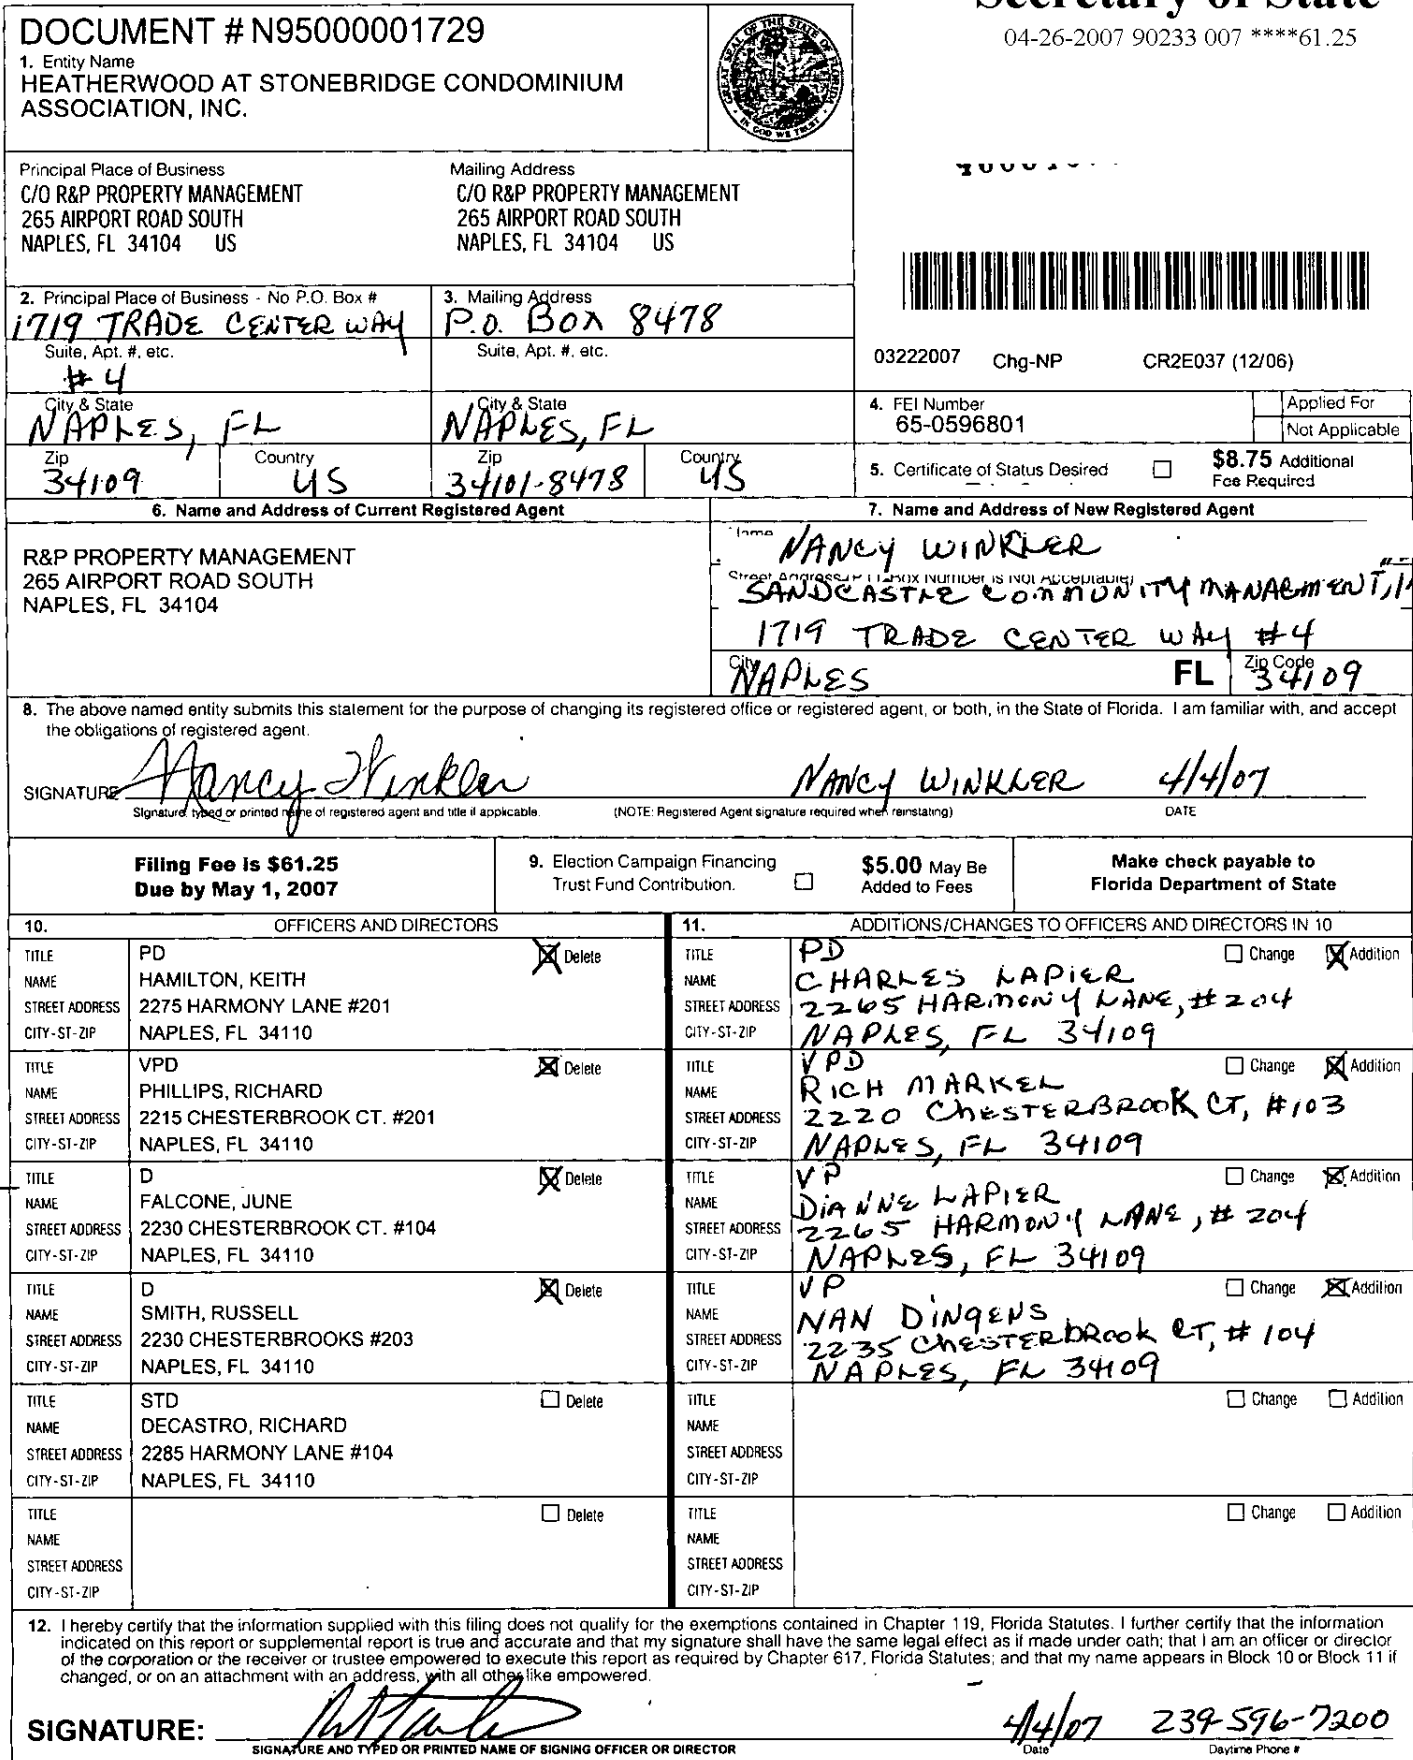 Secretary of State
04-26-2007 90233 007 ****61.25
DOCUMENT # N95000001729
1. Entity Name
HEATHERWOOD AT STONEBRIDGE CONDOMINIUM
ASSOCIATION, INC.
GREAT SEAL OF THE STATE OF FLORIDA
IN GOD WE TRUST
Principal Place of Business
C/O R&P PROPERTY MANAGEMENT
265 AIRPORT ROAD SOUTH
NAPLES, FL 34104 US
Mailing Address
C/O R&P PROPERTY MANAGEMENT
265 AIRPORT ROAD SOUTH
NAPLES, FL 34104 US
2. Principal Place of Business - No P.O. Box #
1719 TRADE CENTER WAY
Suite, Apt. #, etc.
#4
City & State
NAPLES, FL
Zip
34109
Country
US
3. Mailing Address
P.O. BOX 8478
Suite, Apt. #, etc.
City & State
NAPLES, FL
Zip
34101-8478
Country
US
03222007 Chg-NP CR2E037 (12/06)
4. FEI Number
65-0596801
Applied For
Not Applicable
5. Certificate of Status Desired
$8.75 Additional
Fee Required
6. Name and Address of Current Registered Agent
R&P PROPERTY MANAGEMENT
265 AIRPORT ROAD SOUTH
NAPLES, FL 34104
7. Name and Address of New Registered Agent
Name
NANCY WINKLER
Street Address (P.O. Box Number is Not Acceptable)
SANDCASTLE COMMUNITY MANAGEMENT,
1719 TRADE CENTER WAY #4
City
NAPLES FL
Zip Code
34109
8. The above named entity submits this statement for the purpose of changing its registered office or registered agent, or both, in the State of Florida. I am familiar with, and accept
the obligations of registered agent.
SIGNATURE Nancy Winkler NANCY WINKLER 4/4/07
Signature, typed or printed name of registered agent and title if applicable. (NOTE: Registered Agent signature required when reinstating) DATE
Filing Fee is $61.25
Due by May 1, 2007
9. Election Campaign Financing
Trust Fund Contribution.
$5.00 May Be
Added to Fees
Make check payable to
Florida Department of State
10. OFFICERS AND DIRECTORS
11. ADDITIONS/CHANGES TO OFFICERS AND DIRECTORS IN 10
TITLE PD Delete
NAME HAMILTON, KEITH
STREET ADDRESS 2275 HARMONY LANE #201
CITY-ST-ZIP NAPLES, FL 34110
TITLE PD Change Addition
NAME CHARLES LAPIER
STREET ADDRESS 2265 HARMONY LANE, #204
CITY-ST-ZIP NAPLES, FL 34109
TITLE VPD Delete
NAME PHILLIPS, RICHARD
STREET ADDRESS 2215 CHESTERBROOK CT. #201
CITY-ST-ZIP NAPLES, FL 34110
TITLE VPD Change Addition
NAME RICH MARKEL
STREET ADDRESS 2220 CHESTERBROOK CT, #103
CITY-ST-ZIP NAPLES, FL 34109
TITLE D Delete
NAME FALCONE, JUNE
STREET ADDRESS 2230 CHESTERBROOK CT. #104
CITY-ST-ZIP NAPLES, FL 34110
TITLE VP Change Addition
NAME DIANNE LAPIER
STREET ADDRESS 2265 HARMONY LANE, #204
CITY-ST-ZIP NAPLES, FL 34109
TITLE D Delete
NAME SMITH, RUSSELL
STREET ADDRESS 2230 CHESTERBROOKS #203
CITY-ST-ZIP NAPLES, FL 34110
TITLE VP Change Addition
NAME NAN DINGENS
STREET ADDRESS 2235 CHESTERBROOK CT, #104
CITY-ST-ZIP NAPLES, FL 34109
TITLE STD Delete
NAME DECASTRO, RICHARD
STREET ADDRESS 2285 HARMONY LANE #104
CITY-ST-ZIP NAPLES, FL 34110
TITLE Change Addition
NAME
STREET ADDRESS
CITY-ST-ZIP
TITLE Delete
NAME
STREET ADDRESS
CITY-ST-ZIP
TITLE Change Addition
NAME
STREET ADDRESS
CITY-ST-ZIP
12. I hereby certify that the information supplied with this filing does not qualify for the exemptions contained in Chapter 119, Florida Statutes. I further certify that the information
indicated on this report or supplemental report is true and accurate and that my signature shall have the same legal effect as if made under oath; that I am an officer or director
of the corporation or the receiver or trustee empowered to execute this report as required by Chapter 617, Florida Statutes; and that my name appears in Block 10 or Block 11 if
changed, or on an attachment with an address, with all other like empowered.
SIGNATURE: 4/4/07 239-596-7200
SIGNATURE AND TYPED OR PRINTED NAME OF SIGNING OFFICER OR DIRECTOR Date Daytime Phone #